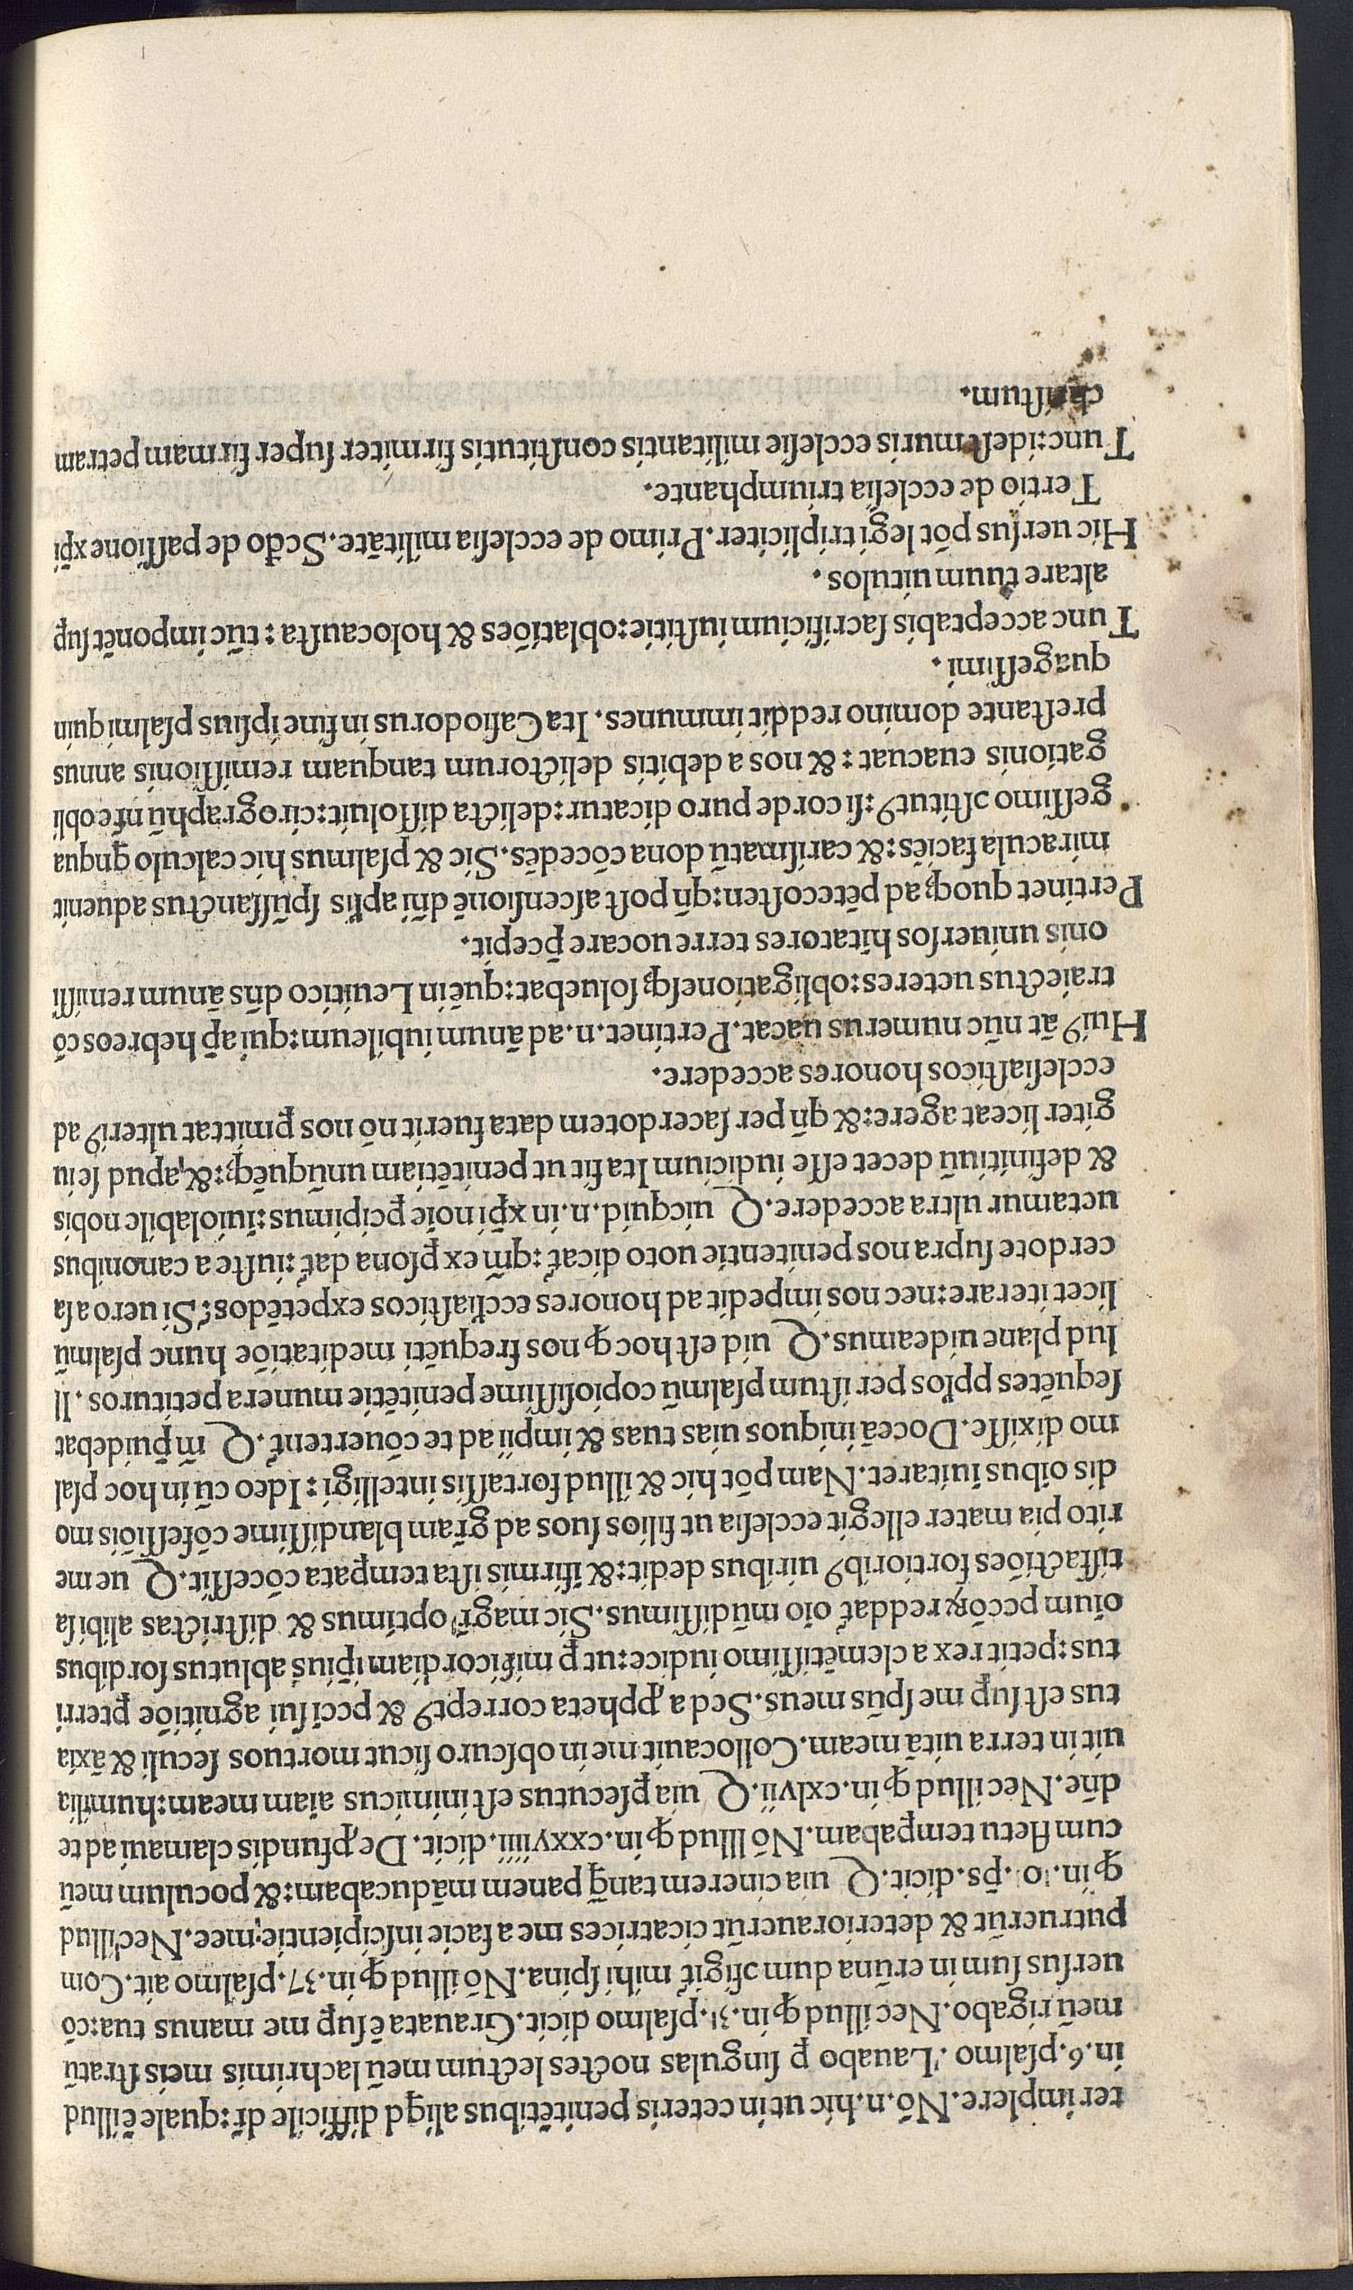 ter implere. Nō.n. hic ut in ceteris penitētibus aliqd difficile dr̄: quale ē illud
in.6. psalmo. Lauabo ꝑ singulas noctes lectum meū lachrimis meis stratū
meū rigabo. Nec illud ꝙ in.31. psalmo dicit. Grauata ē suꝑ me manus tua: cō
uersus sum in erūna dum ↄfigit̄ mihi spina. Nō illud ꝙ in.37. psalmo ait. Com
putruerūt & deteriorauerūt cicatrices me a facie insipientie mee. Nec illud
ꝙ in. p̄s. dicit. Q uia cinerem tanꝗ panem māducabam: & poculum meū
cum fletu temꝑabam. Nō Illud ꝙ in.cxxviiii. dicit. De ꝓfundis clamaui ad te
dn̄e. Nec illud ꝙ in.cxlvii. Q uia ꝑsecutus est inimicus aīam meam: humilia
uit in terra uitā meam. Collocauit me in obscuro sicut mortuos seculi & āxia
tus est suꝑ me sp̄us meus. Sed a ꝓpheta correptꝰ & pccī sui agnitiōe ꝑterri
tus: petit rex a clemētissimo iudice: ut ꝑ mīficordiam ip̄ius ablutus sordibus
oīum pccōꝝ reddat̄ oīo mūdissimus. Sic magr̄ optimus & districtas alibi sa
tisfactiōes fortioribꝰ uiribus dedit: & ifirmis ista temꝑata cōcessit. Q ue me
rito pia mater ellegit ecclesia ut filios suos ad gr̄am blandissime cōfessiōis mo
dis oībus īuitaret. Nam pōt hic & illud fortassis intelligi: Ideo cū in hoc psal
mo dixisse. Doceā iniquos uias tuas & impii ad te cōuertent̄. Q m̄ ꝑuidebat
sequētes pp̄los per istum psalmū copiosissime penitētie munera petituros. Il
lud plane uideamus. Q uid est hoc ꝙ nos frequēti meditatiōe hunc psalmū
licet iterare: nec nos impedit ad honores eccliasticos expetēdos: Si uero a sa
cerdote supra nos penitentie uoto dicat̄: qm̄ ex ꝑsona dat̄: iuste a canonibus
uetamur ultra accedere. Q uicquid.n. in xp̄i noīe ꝑcipimus: īuiolabile nobis
& definitiuū decet esse iudicium Ita fit ut penitētiam unūquēꝗ: & apud se iu
giter liceat agere: & qn̄ per sacerdotem data fuerit nō nos ꝑmittat ulteriꝰ ad
ecclesiasticos honores accedere.
Huiꝰ āt nūc numerus uacat. Pertinet.n. ad ānum iubileum: qui ap̄ hebreos cō
traiectus ueteres: obligationesꝗ soluebat: quē in Leuitico dn̄s ānum remissi
onis uniuersos hītatores terre uocare p̄cepit.
Pertinet quoꝗ ad pētecosten: qn̄ post ascensionē dn̄i ap̄lis sp̄us sanctus aduenit
miracula faciēs: & carismatū dona cōcedēs. Sic & psalmus hic calculo qnqua
gessimo ↄstitutꝰ: si corde puro dicatur: delicta dissoluit: cirographū nr̄e obli
gationis euacuat: & nos a debitis delictorum tanquam remissionis annus
prestante domino reddit immunes. Ita Casiodorus in fine ipsius psalmi quin
quagessimi.
Tunc acceptabis sacrificium iustitie: oblatiōes & holocausta: tūc imponēt suꝑ
altare tuum uitulos.
Hic uersus pōt legi tripliciter. Primo de ecclesia militāte. Scd̄o de passione xp̄i
Tertio de ecclesia triumphante.
Tunc: idest muris ecclesie militantis constitutis firmiter super firmam petram
christum.